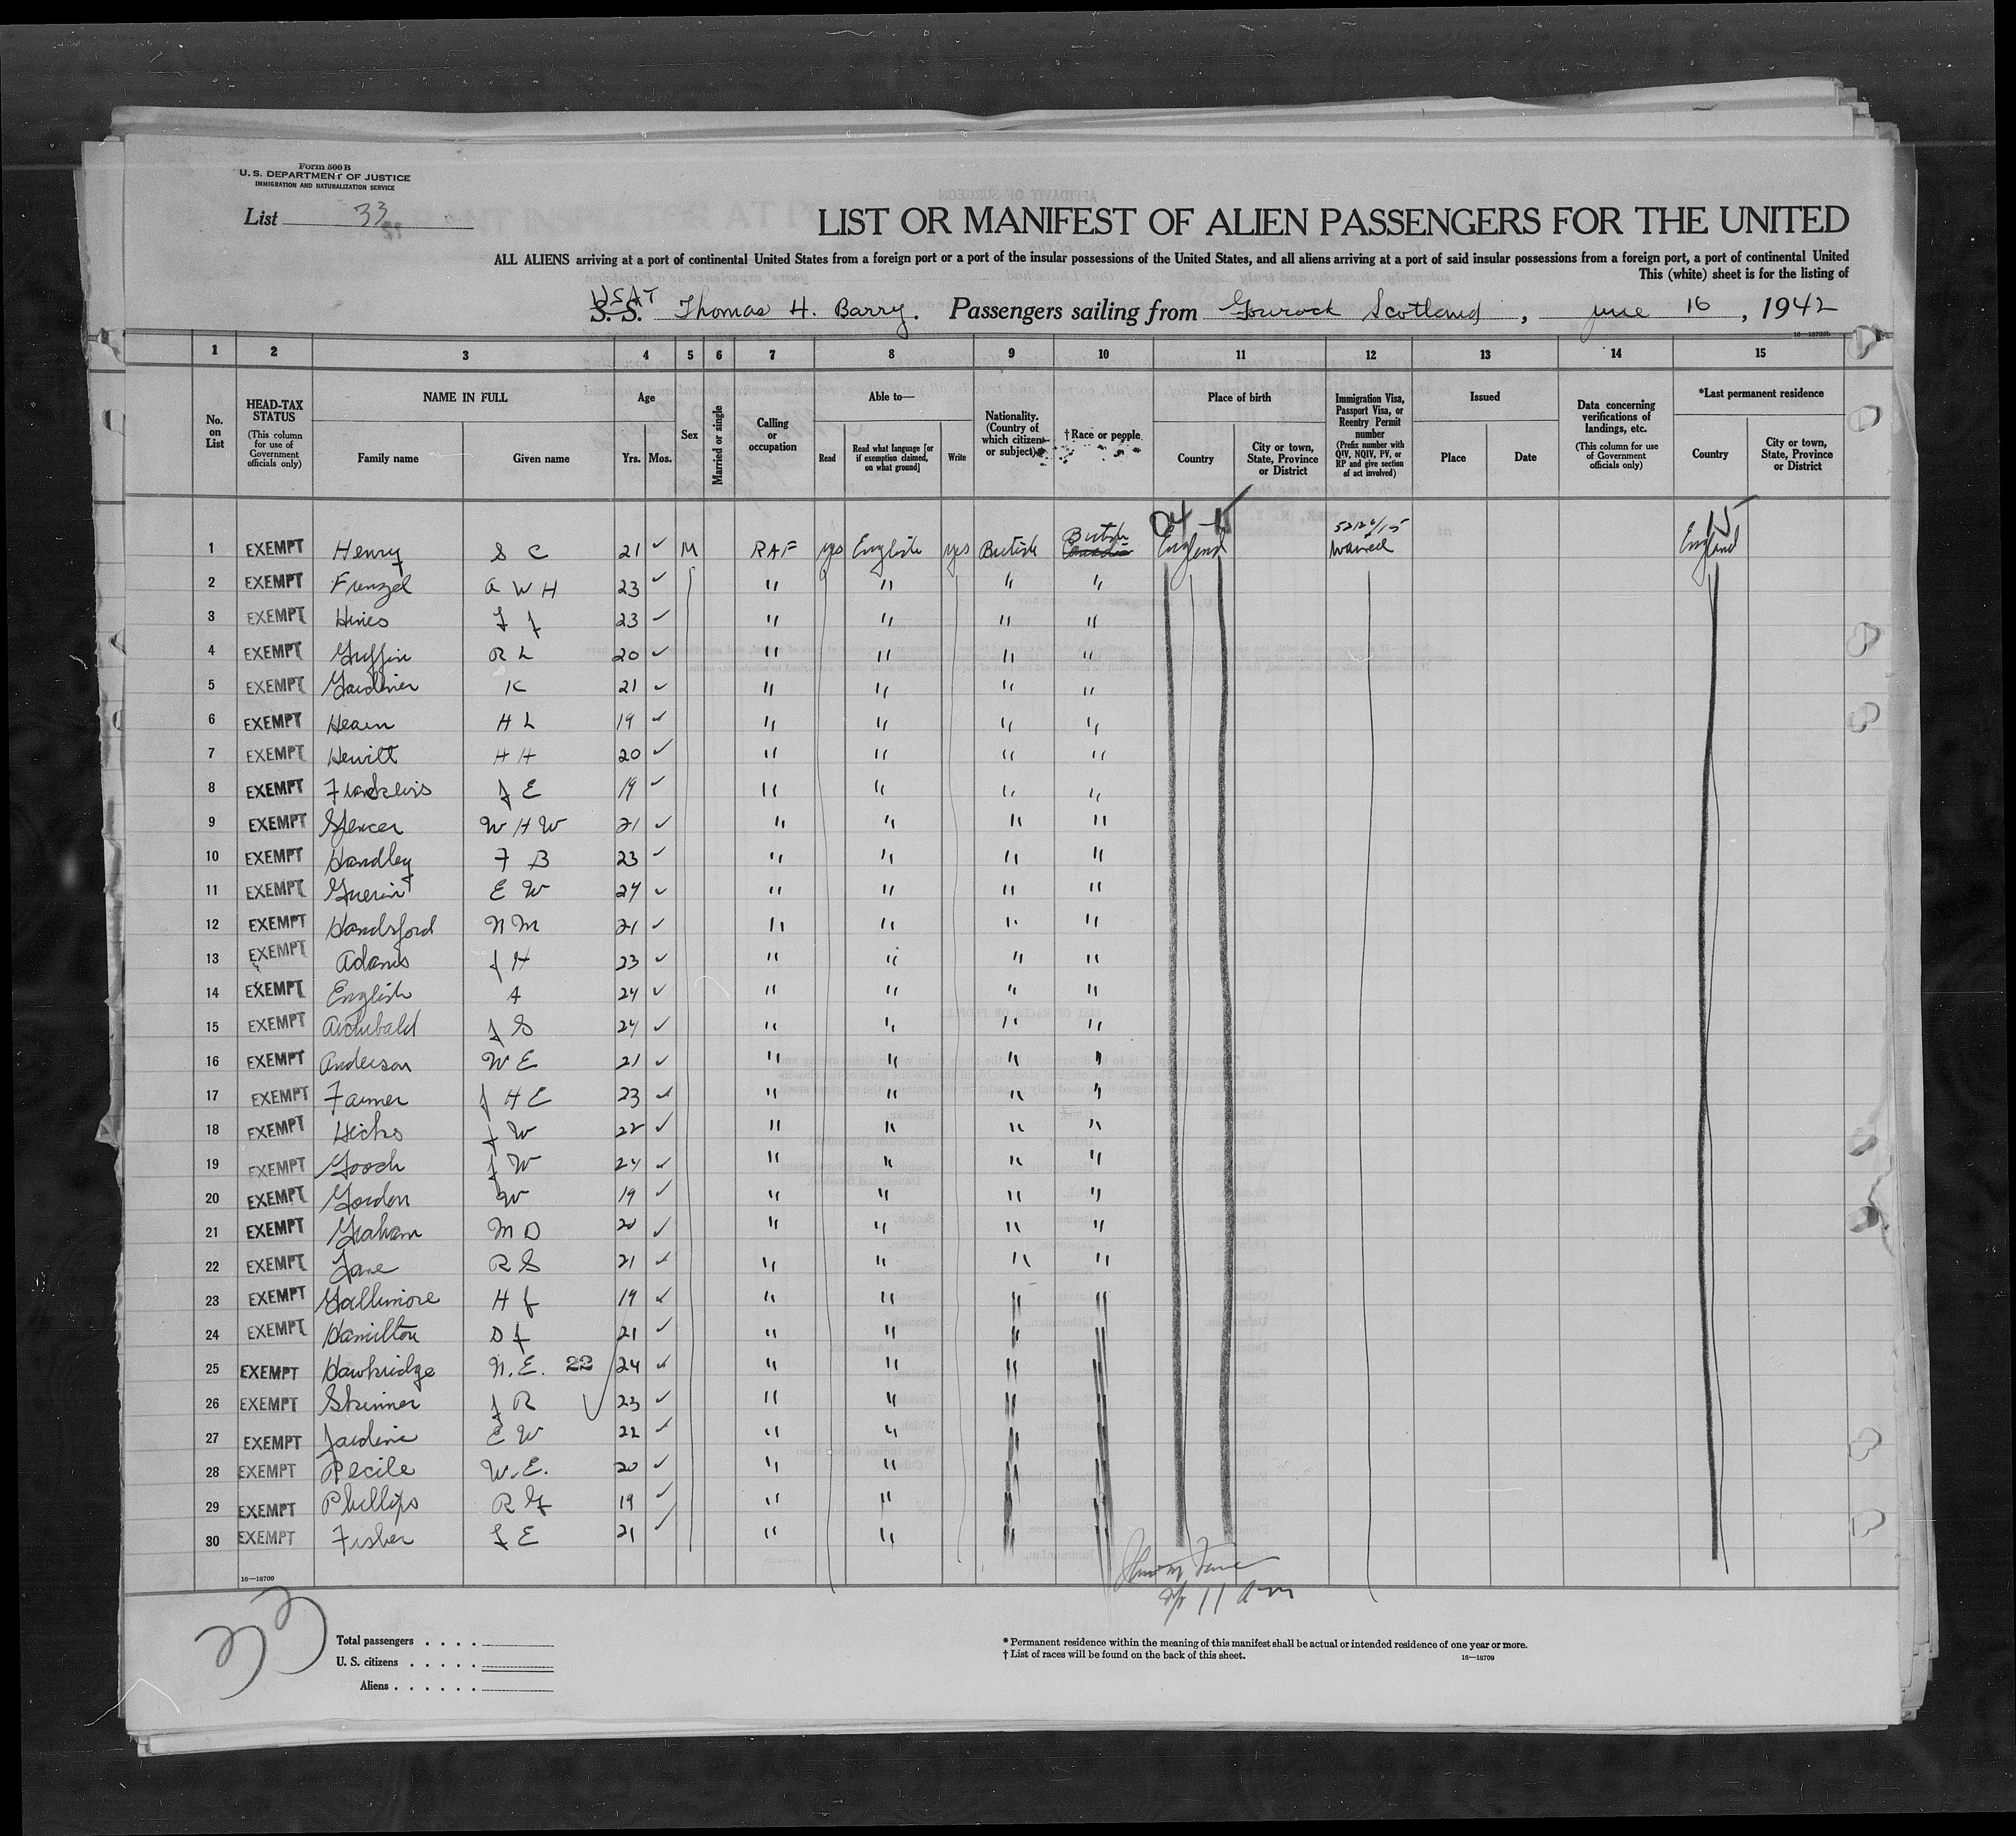 Form 500 B
U. S. DEPARTMENT OF JUSTICE
IMMIGRATION AND NATURALIZATION SERVICE
List 33
LIST OR MANIFEST OF ALIEN PASSENGERS FOR THE UNITED
ALL ALIENS arriving at a port of continental United States from a foreign port or a port of the insular possessions of the United States, and all aliens arriving at a port of said insular possessions from a foreign port, a port of continental United
This (white) sheet is for the listing of
USAT
S. S. Thomas H. Barry. Passengers sailing from Gourock Scotland, June 16, 1942
16—18709b
1 2 3 4 5 6 7 8 9 10 11 12 13 14 15
No. on List
HEAD-TAX STATUS (This column for use of Government officials only)
NAME IN FULL
Family name
Given name
Age
Yrs. Mos.
Sex
Married or single
Calling or occupation
Able to—
Read
Read what language [or if exemption claimed, on what ground]
Write
Nationality. (Country of which citizen or subject)
†Race or people
Place of birth
Country
City or town, State, Province or District
Immigration Visa, Passport Visa, or Reentry Permit number (Prefix number with QIV, NQIV, PV, or RP and give section of act involved)
Issued
Place
Date
Data concerning verifications of landings, etc. (This column for use of Government officials only)
*Last permanent residence
Country
City or town, State, Province or District
1 EXEMPT Henry S C 21 ✓ M RAF yes English yes British British England waived England
2 EXEMPT Frenzel A W H 23 ✓ " " " "
3 EXEMPT Hines F J 23 ✓ " " " "
4 EXEMPT Griffin R L 20 ✓ " " " "
5 EXEMPT Gardiner K 21 ✓ " " " "
6 EXEMPT Hearn H L 19 ✓ " " " "
7 EXEMPT Hewitt H H 20 ✓ " " " "
8 EXEMPT J E 19 ✓ " " " "
9 EXEMPT Spencer W H W 21 ✓ " " " "
10 EXEMPT Handley F B 23 ✓ " " " "
11 EXEMPT Guerin E W 24 ✓ " " " "
12 EXEMPT Handsford N M 21 ✓ " " " "
13 EXEMPT Adams J H 23 ✓ " " " "
14 EXEMPT English A 24 ✓ " " " "
15 EXEMPT Archibald J S 24 ✓ " " " "
16 EXEMPT Anderson W E 21 ✓ " " " "
17 EXEMPT Farmer J H E 23 ✓ " " " "
18 EXEMPT Hicks J W 22 ✓ " " " "
19 EXEMPT Gooch J W 24 ✓ " " " "
20 EXEMPT Gordon W 19 ✓ " " " "
21 EXEMPT Graham M D 20 ✓ " " " "
22 EXEMPT R S 21 ✓ " " " "
23 EXEMPT Gallimore H J 19 ✓ " " " "
24 EXEMPT Hamilton D J 21 ✓ " " " "
25 EXEMPT Hawkridge N. E. 22 24 ✓ " " " "
26 EXEMPT Skinner J R 23 ✓ " " " "
27 EXEMPT Jardine E W 22 ✓ " " " "
28 EXEMPT W. E. 20 ✓ " " " "
29 EXEMPT Phillips R G 19 ✓ " " " "
30 EXEMPT Fisher E 21 ✓ " " " "
16—18709
11 am
33
Total passengers . . . .
U. S. citizens . . . . .
Aliens . . . . . .
* Permanent residence within the meaning of this manifest shall be actual or intended residence of one year or more.
† List of races will be found on the back of this sheet.
16—18709